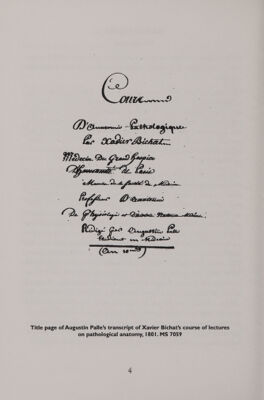 Cours
D'Anatomie Pathologique
Par Xavier Bichat
Médecin Du Grand hospice
D'humanité de Paris
Membre de la Société de Médecine
Professeur D'anatomie
De Physiologie et
Rédigé par augustin Palle
Etudiant en Médecine
Title page of Augustin Palle's transcript of Xavier Bichat's course of lectures
on pathological anatomy, 1801. MS 7059
4